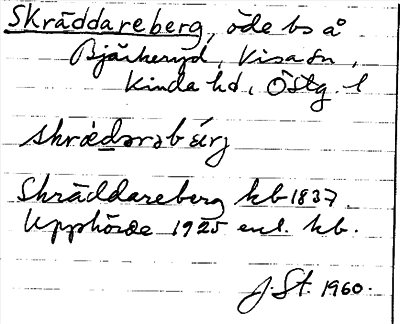 Skräddareberg, öde bs å
Bjärkeryd, Visa sn,
Kinda hd, Östg. l
Skräddareberg kb 1837.
Upphörde 1925 enl. kb.
J. St. 1960.